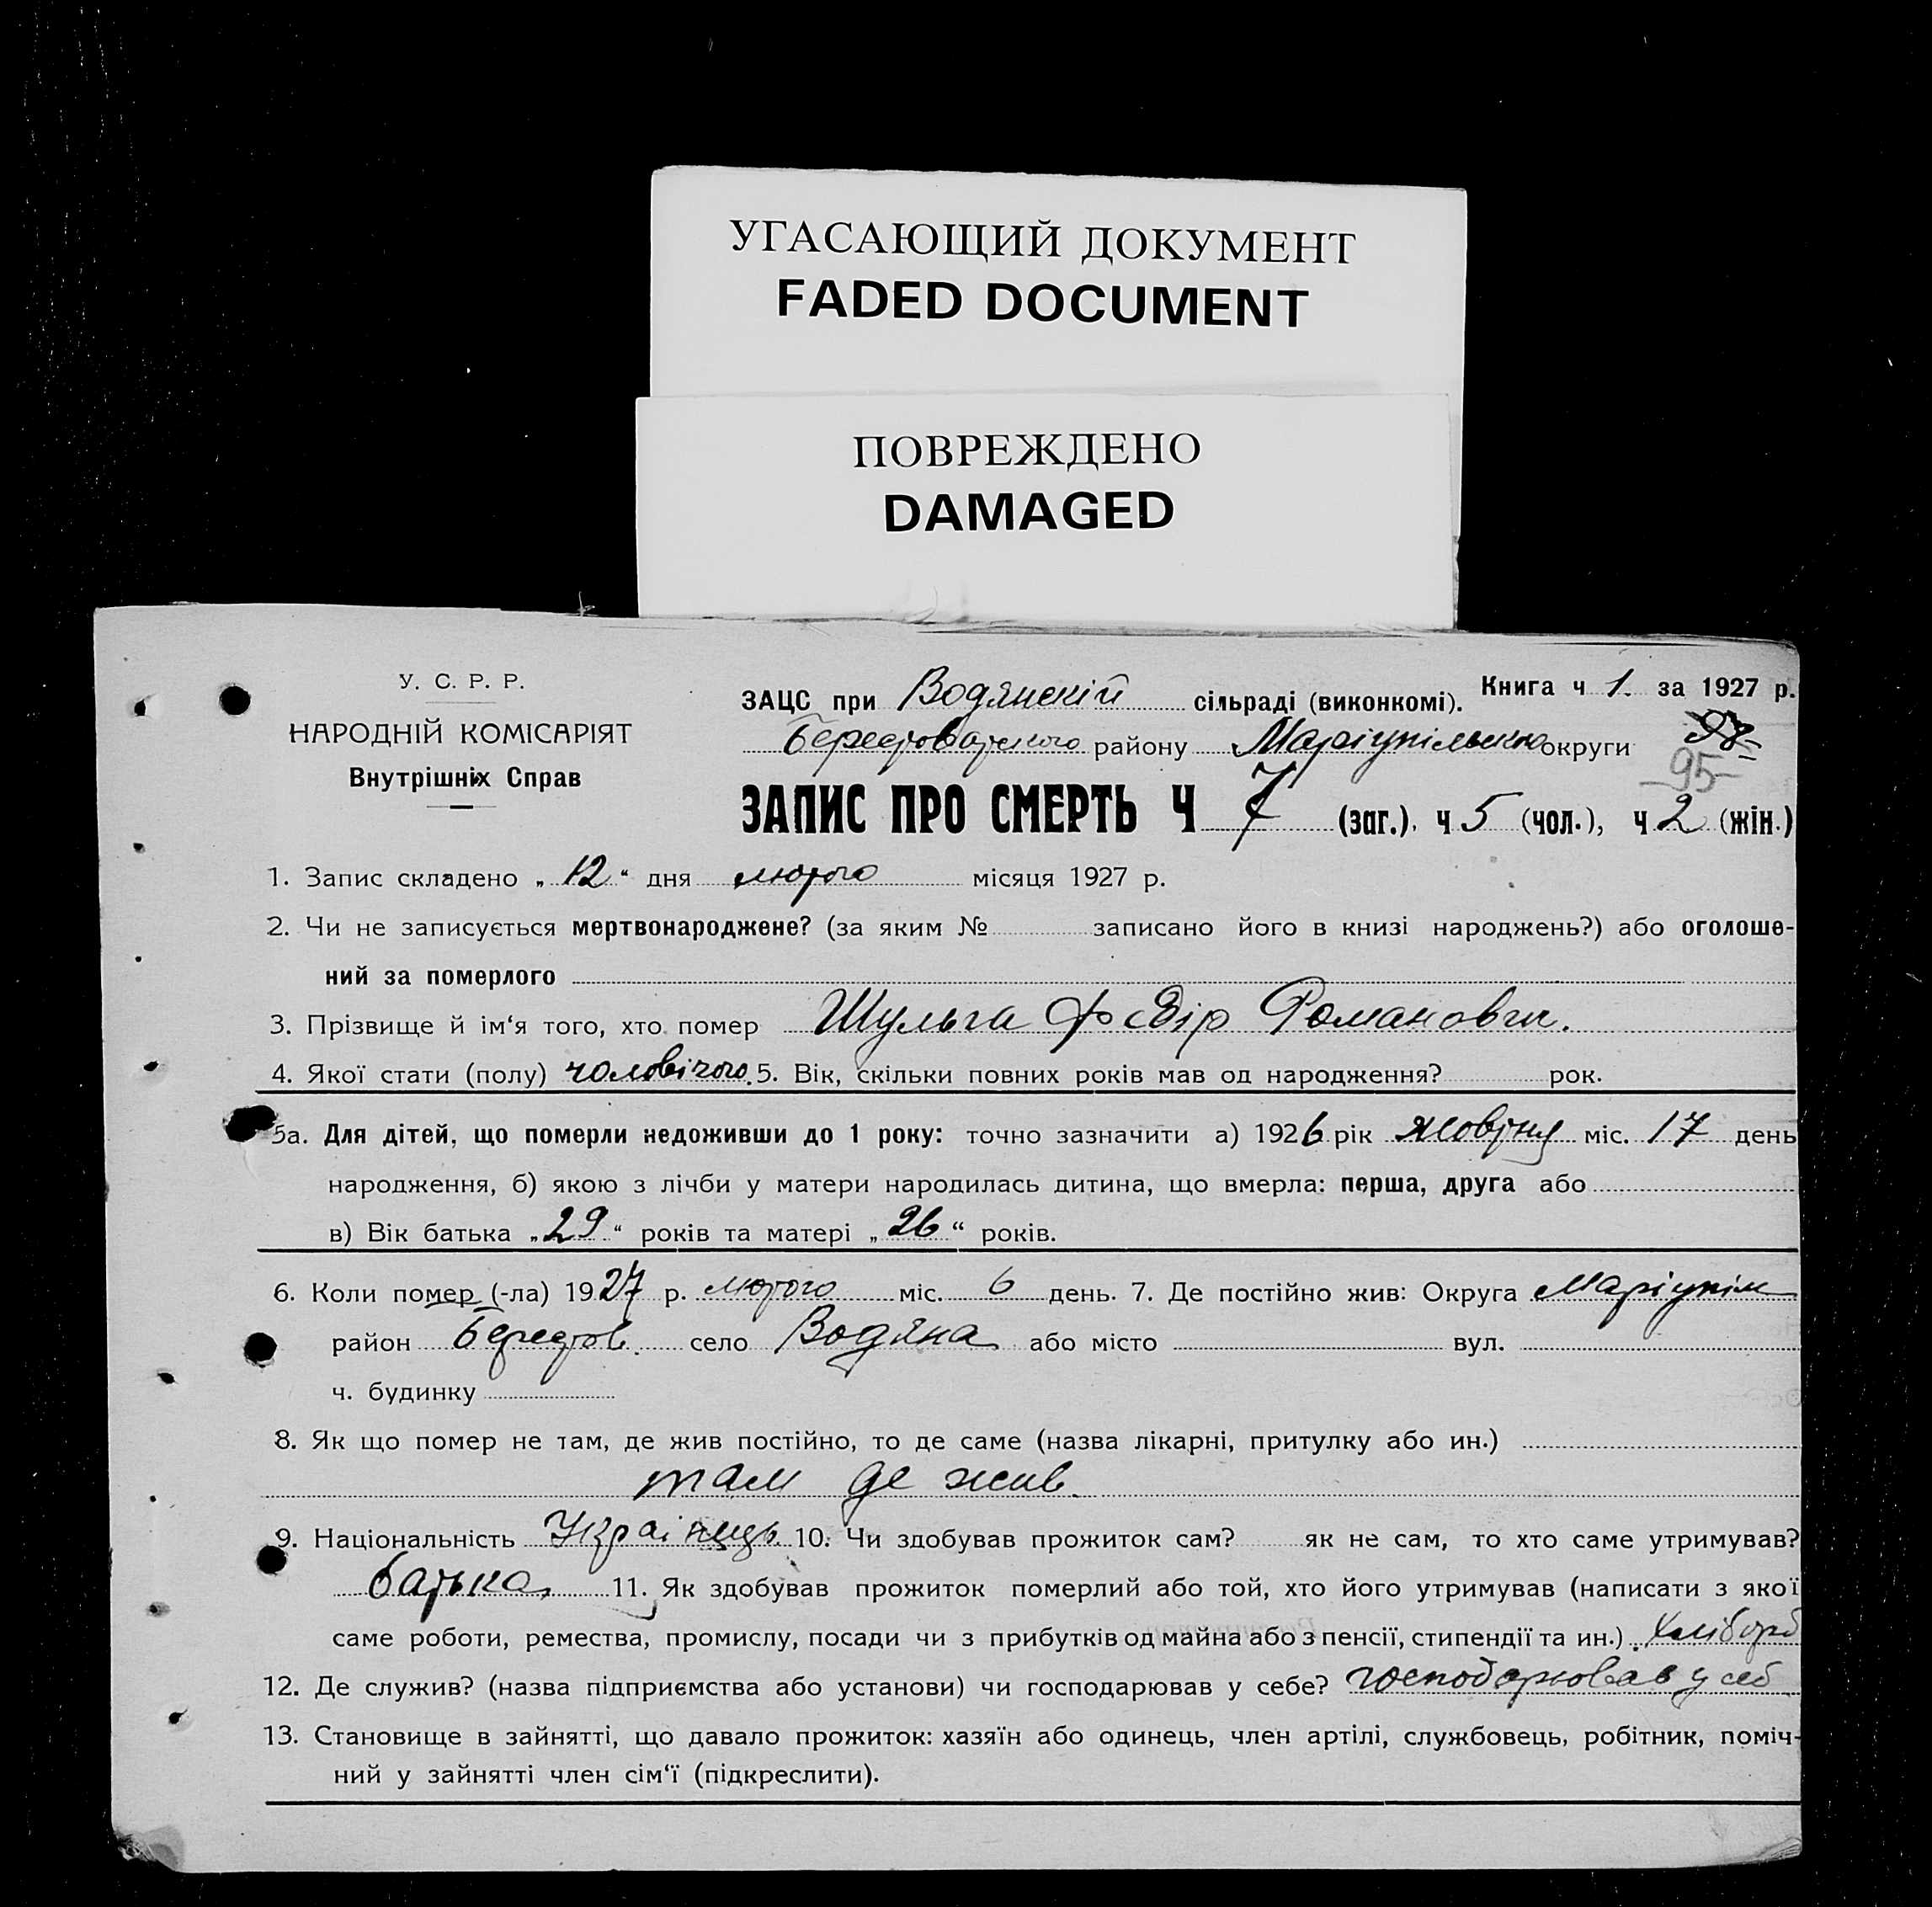 УГАСАЮЩИЙ ДОКУМЕНТ
FADED DOCUMENT
ПОВРЕЖДЕНО
DAMAGED
У. С. Р. Р.
НАРОДНІЙ КОМІСАРІЯТ
Внутрішніх Справ
ЗАЦС при Водянскій сільраді (виконкомі). Книга ч 1. за 1927 р.
району Маріупільської округи
-95-
ЗАПИС ПРО СМЕРТЬ Ч 7 (заг.), ч 5 (чол.), ч 2 (жін.)
1. Запис складено „12“ дня лютого місяця 1927 р.
2. Чи не записується мертвонароджене? (за яким № записано його в книзі народжень?) або оголоше-
ний за померлого
3. Прізвище й ім‘я того, хто помер Шульга Романович.
4. Якої стати (полу) чоловічого. 5. Вік, скільки повних років мав од народження? рок.
5а. Для дітей, що померли недоживши до 1 року: точно зазначити а) 1926 рік жовтня міс. 17 день
народження, б) якою з лічби у матери народилась дитина, що вмерла: перша, друга або
в) Вік батька „29“ років та матері „26“ років.
6. Коли помер (-ла) 1927 р. лютого міс. 6 день. 7. Де постійно жив: Округа Маріупіл
район Берестов. село Водяна або місто вул.
ч. будинку
8. Як що помер не там, де жив постійно, то де саме (назва лікарні, притулку або ин.)
там де жив.
9. Національність Украінець. 10. Чи здобував прожиток сам? як не сам, то хто саме утримував?
батько, 11. Як здобував прожиток померлий або той, хто його утримував (написати з якої
саме роботи, ремества, промислу, посади чи з прибутків од майна або з пенсії, стипендії та ин.) Хлібороб
12. Де служив? (назва підприємства або установи) чи господарював у себе? господарював у себ
13. Становище в зайнятті, що давало прожиток: хазяїн або одинець, член артілі, службовець, робітник, поміч-
ний у зайнятті член сім‘ї (підкреслити).